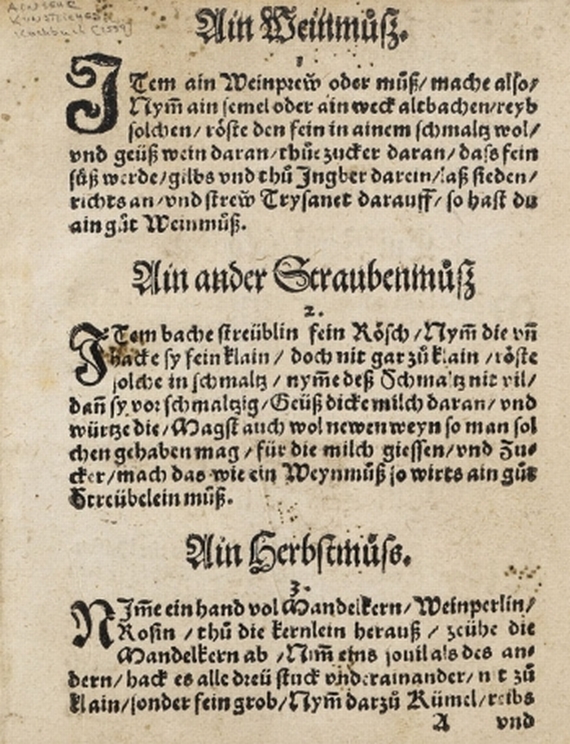 Ain Weinmůß.
1
ITem ain Weinprew̋ oder můß/ mache also/
Nym̃ ain semel oder ain weck altbachen/reyb
solchen/ röste den fein in ainem schmaltz wol/
vnd geüß wein daran/thůe zucker daran/ dass fein
süß werde/gilbs vnd thů Ingber darein/laß sieden/
richts an/vnd strew̋ Trysanet darauff/ so hast du
ain gůt Weinmůß.
Ain ander Straubenmůß
2.
ITem bache streüblin fein Rösch/Nym̃ die vñ
hacke sy fein klain/ doch nit gar zů klain/röste
solche in schmaltz/ nym̃e deß Schmaltz nit vil/
dañ sy vor schmaltzig/Geüß dicke milch daran/ vnd
würtze die/Magst auch wol newen weyn so man sol
chen gehaben mag/ für die milch giessen/vnd Zu⸗
cker/mach das wie ein Weynmůß so wirts ain gůt
Streübelein můß.
Ain Herbstmůss.
3.
NIm̃e ein hand vol Mandelkern/Weinperlin/
Rosin/ thů die kernlein herauß/ zeühe die
Mandelkern ab/Nim̃ eins souil als des an⸗
dern/ hack es alle dreü stuck vnderainander/ nit zů
klain/sonder fein grob/Nym̃ darzů Kümel/reibs
A vnd